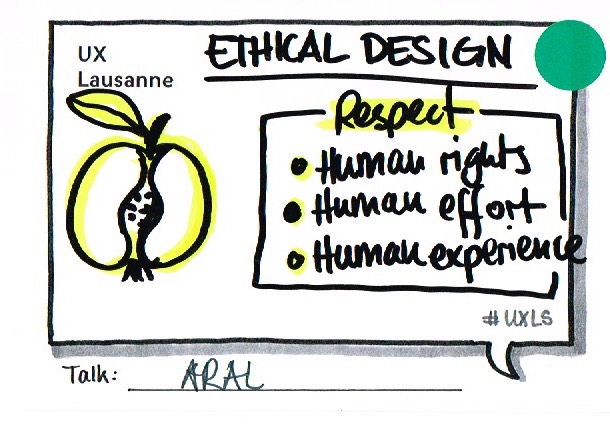 UX
Lausanne
ETHICAL DESIGN
Respect
Human rights
Human effort
Human experience
#UXLS
Talk: ARAL